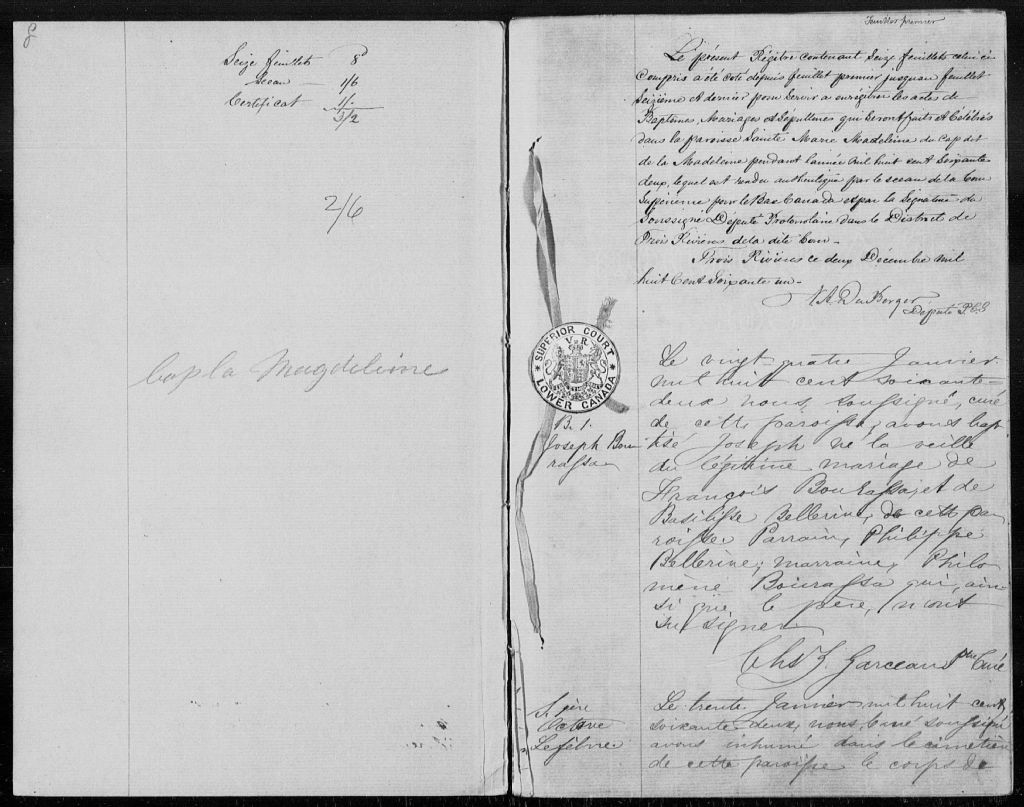 Seize feuillets 8
Sceau 1/6
Certificat 1/-
3/2
2/6
Cap la Magdeleine
Feuillet premier
Le présent Régitre contenant Seize feuillets celui ci
Compris a été coté depuis feuillet premier jusquau feuillet
Seizième et dernier pour servir a enrégitrer les actes de
Baptêmes, Mariages et Sepultures qui seront faits et Célébrés
dans la paroisse Sainte Marie Madeleine du Cap dit
de la Madeleine pendant l'année mil huit cent soixante
deux, lequel est rendu authentique par le sceau de la Cour
Supérieure pour le Bas Canada et par la Signature du
Soussigné Député Protonotaire dans le District de
Trois Rivières de la dite Cour -
Trois Rivières ce deux Décembre mil
huit Cent Soixante un -
DuBerger
Député P.C.S
SUPERIOR COURT
V R
LOWER CANADA
B. 1.
Joseph Bou
rassa
Le vingt quatre Janvier
mil huit cent soixante-
deux nous, soussigné, curé
de cette paroisse, avons bap
tisé Joseph né la veille
du légitime mariage de
François Bourassa et de
Basilisse Bellerive, de cette pa
roisse. Parrain, Philippe
Bellerive; marraine, Philo
mène Bourassa qui, ain
si que le père, n'ont
su signer
Chs Z. Garceau ptre Curé
S. 1ère
Octave
Lefebvre
Le trente Janvier mil huit cent
soixante deux, nous, Curé soussigné
avons inhumé dans le cimetière
de cette paroisse le corps de